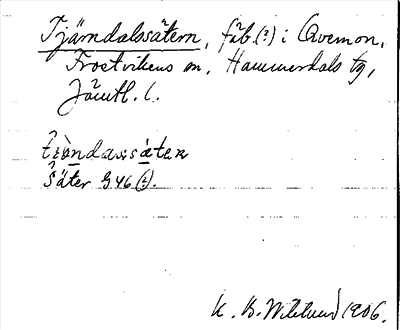 Tjärndalssätern, fäb. (?) i Qvemon,
Frostvikens sn, Hammerdals tg,
Jämtl. l.
Säter G 46 (?).
K. B. Wiklund 1906.